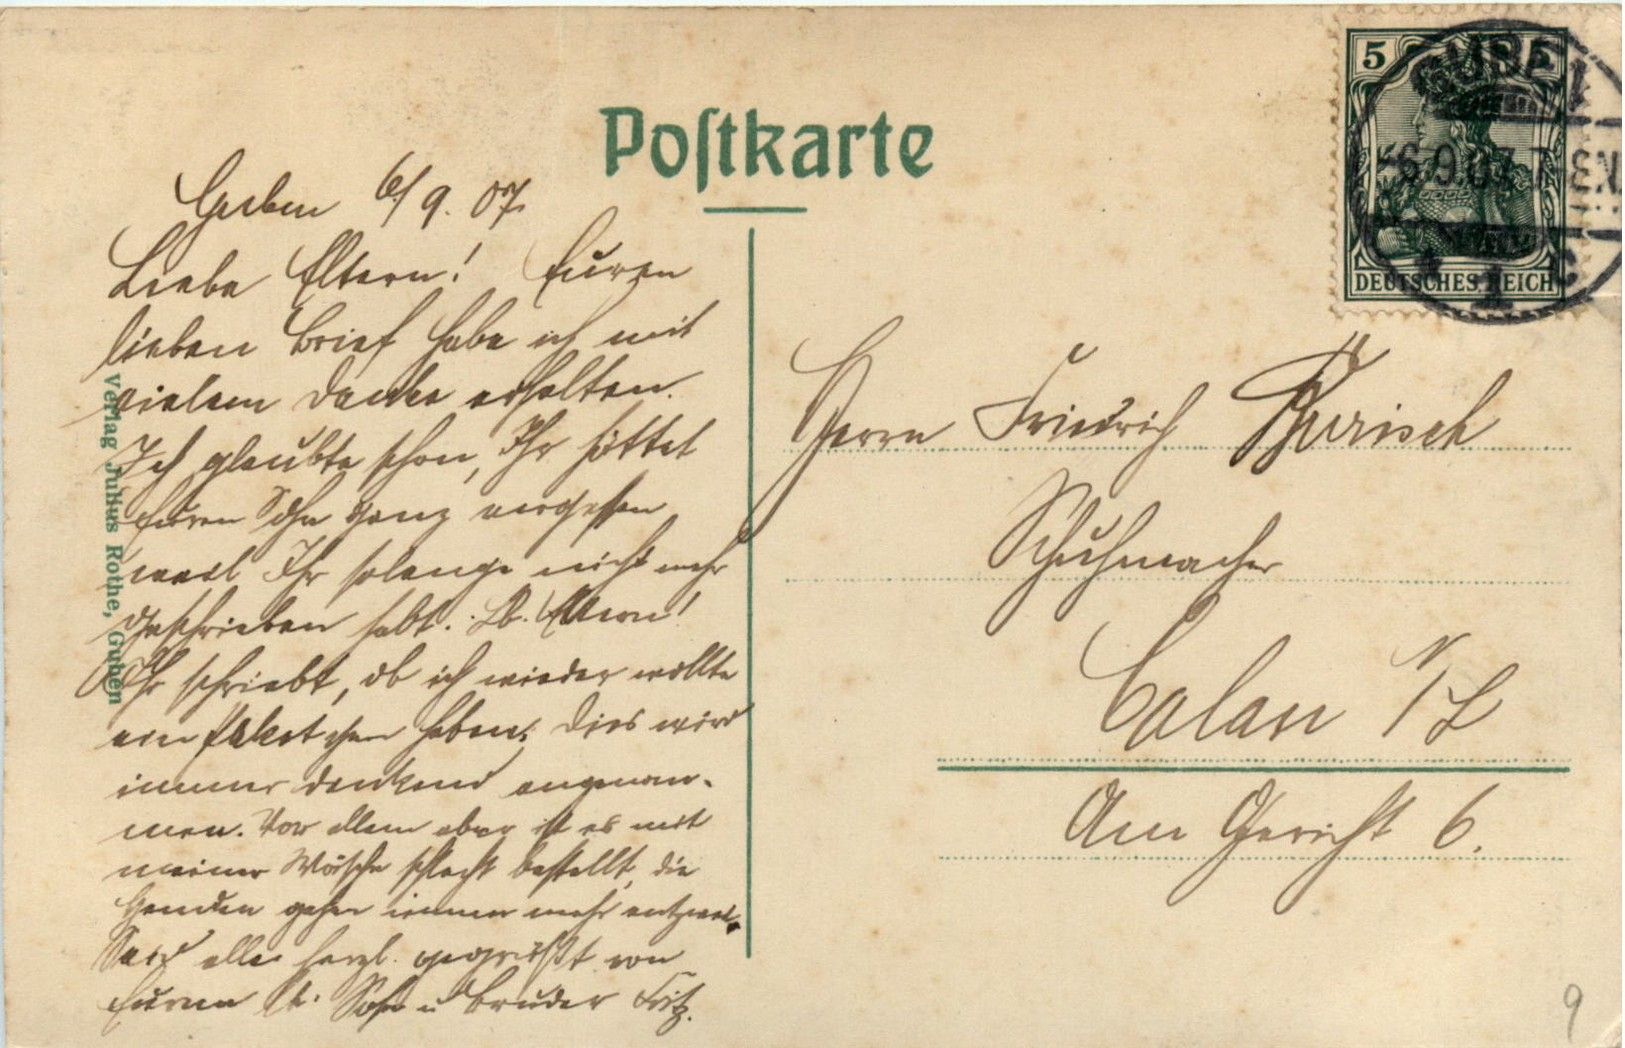 Postkarte
Guben 6/9. 07.
Liebe Eltern! Euren
lieben Brief habe ich mit
vielem Danke erhalten.
Ich glaubte schon, Ihr hättet
Euren Sohn ganz vergessen
weil Ihr solange nicht mehr
geschrieben habt. Lb. Eltern!
Ihr schriebt, ob ich wieder wollte
ein Paketchen haben, dies wird
immer dankend angenom-
men. Vor allem aber ist es mit
meiner Wäsche schlecht bestellt, die
Hemden gehen immer mehr entzwei.
Seid alle herzl. gegrüßt von
Eurem lb. Sohn u Bruder Fritz.
Verlag Julius Rothe, Guben
5 5
DEUTSCHES REICH
GUBEN
6.9.07. 7-8N.
Herrn Friedrich
Schuhmacher
Calau N/L
Am Gericht 6.
9